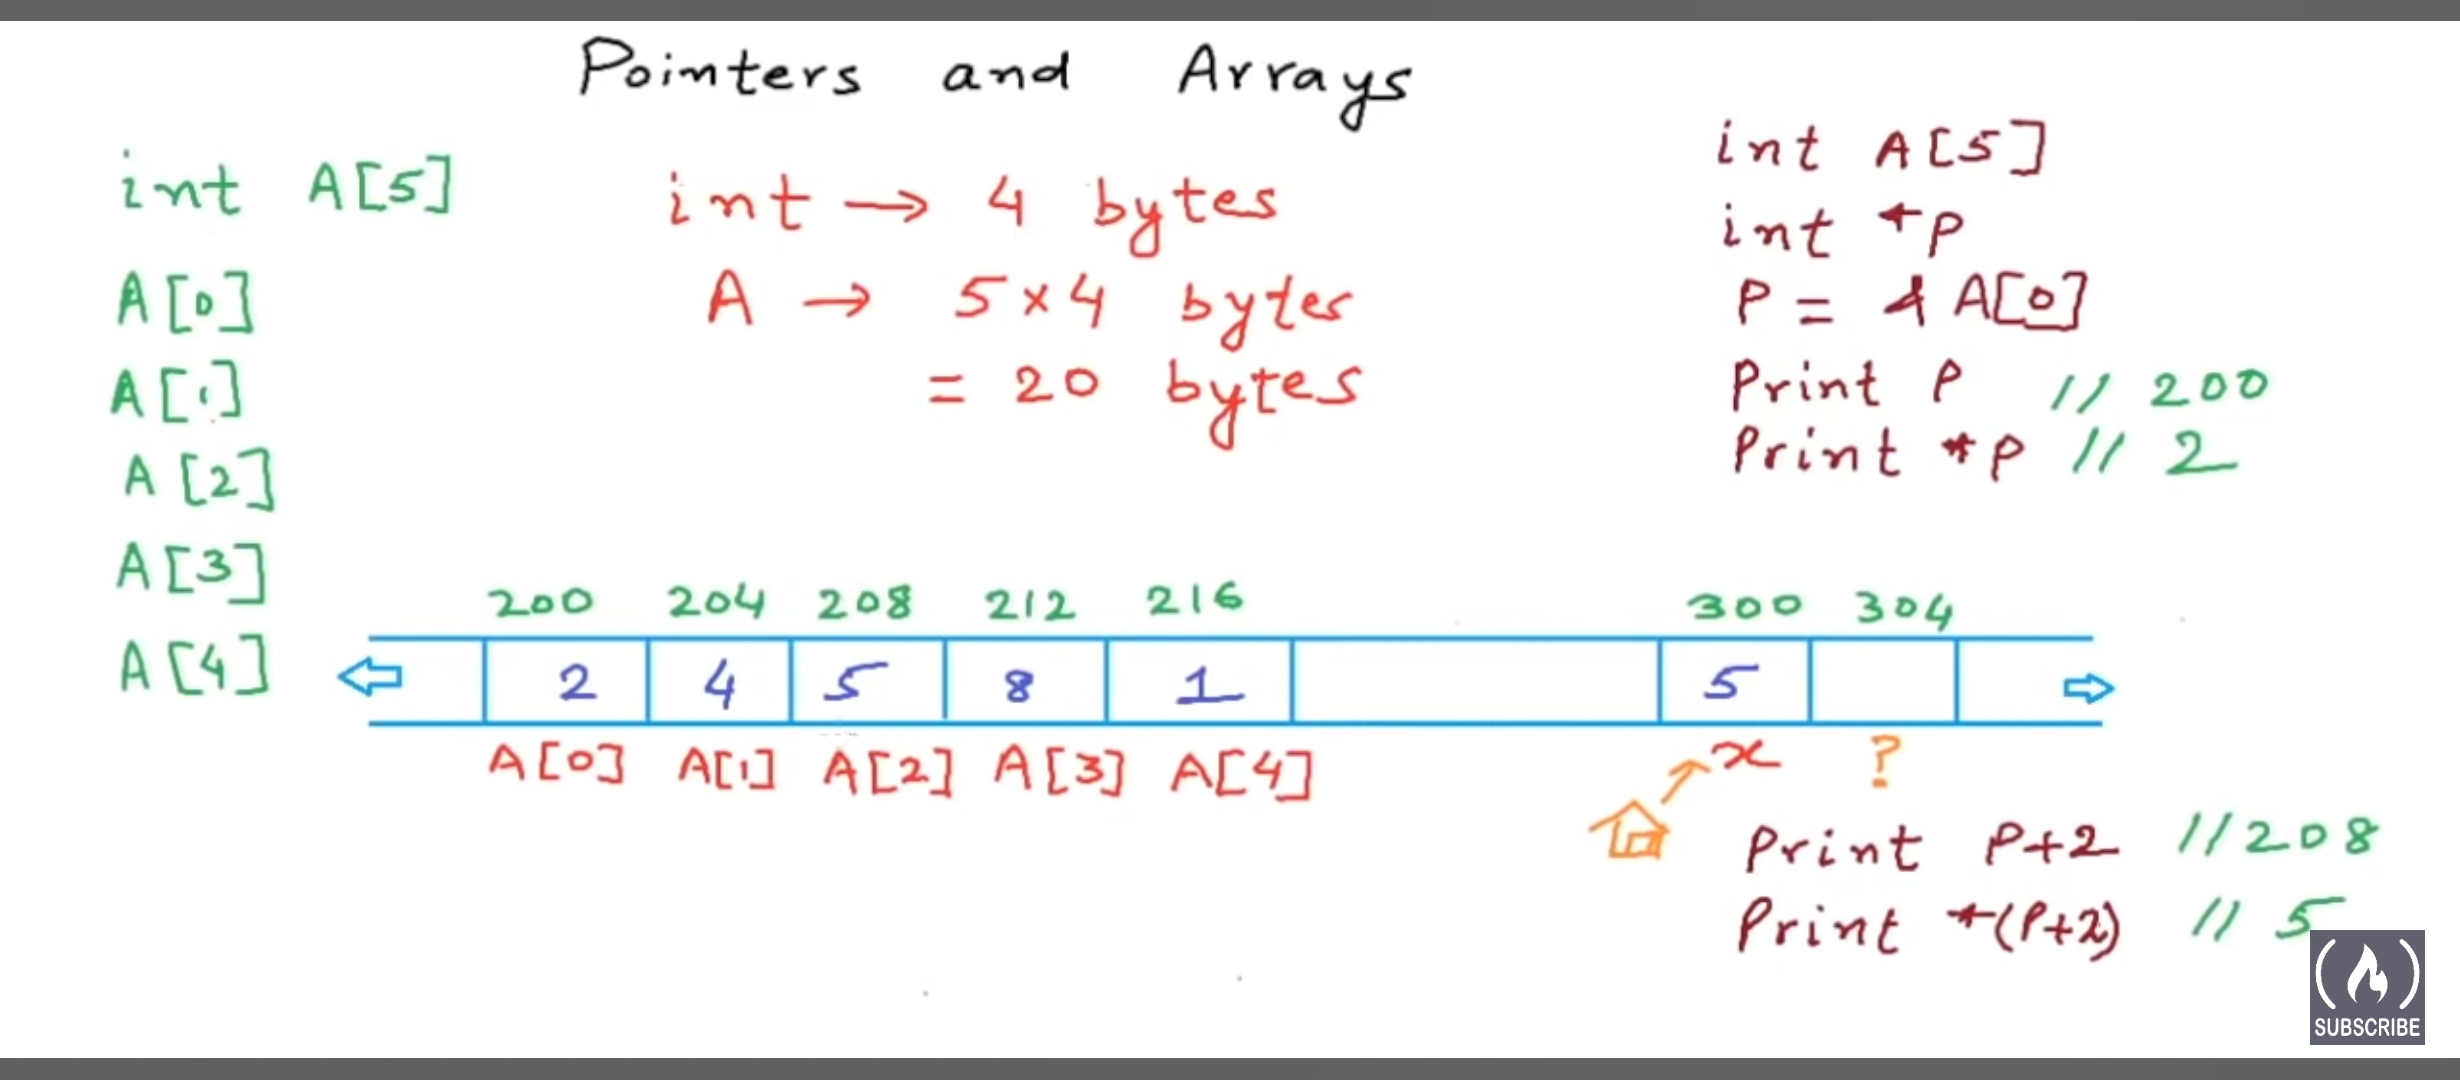 Pointers and Arrays
int A[5]
A[0]
A[1]
A[2]
A[3]
A[4]
int → 4 bytes
A → 5×4 bytes
= 20 bytes
int A[5]
int *p
P = &A[0]
Print P // 200
Print *p // 2
200 204 208 212 216 300 304
2 4 5 8 1 5
A[0] A[1] A[2] A[3] A[4] x ?
Print P+2 //208
Print *(P+2) // 5
SUBSCRIBE